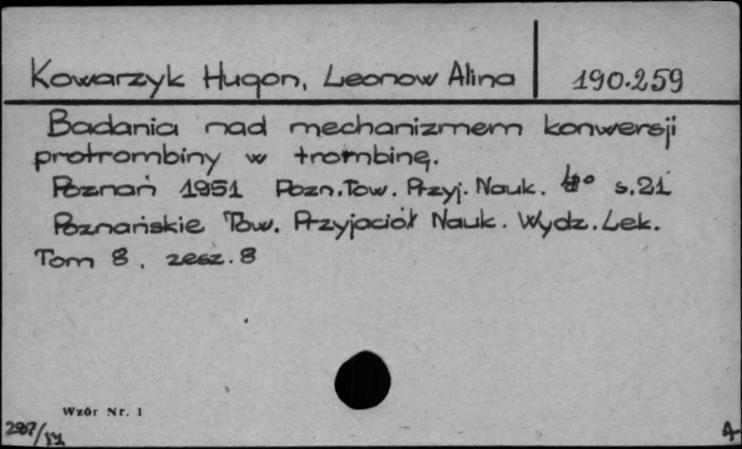 Kowarzyk Hugon, Leonow Alina 190.259
Badania nad mechanizmem konwersji
protrombiny w trombinę.
Poznań 1951 Pozn. Tow. Przyj. Nauk. 4° s. 21
Poznańskie Tow. Przyjaciół Nauk. Wydz. Lek.
Tom 8, zesz. 8
Wzór Nr. 1
A